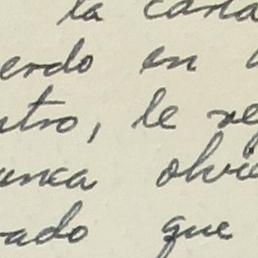 la carta
erdo en
ntro, le re
unca olvie
rado que